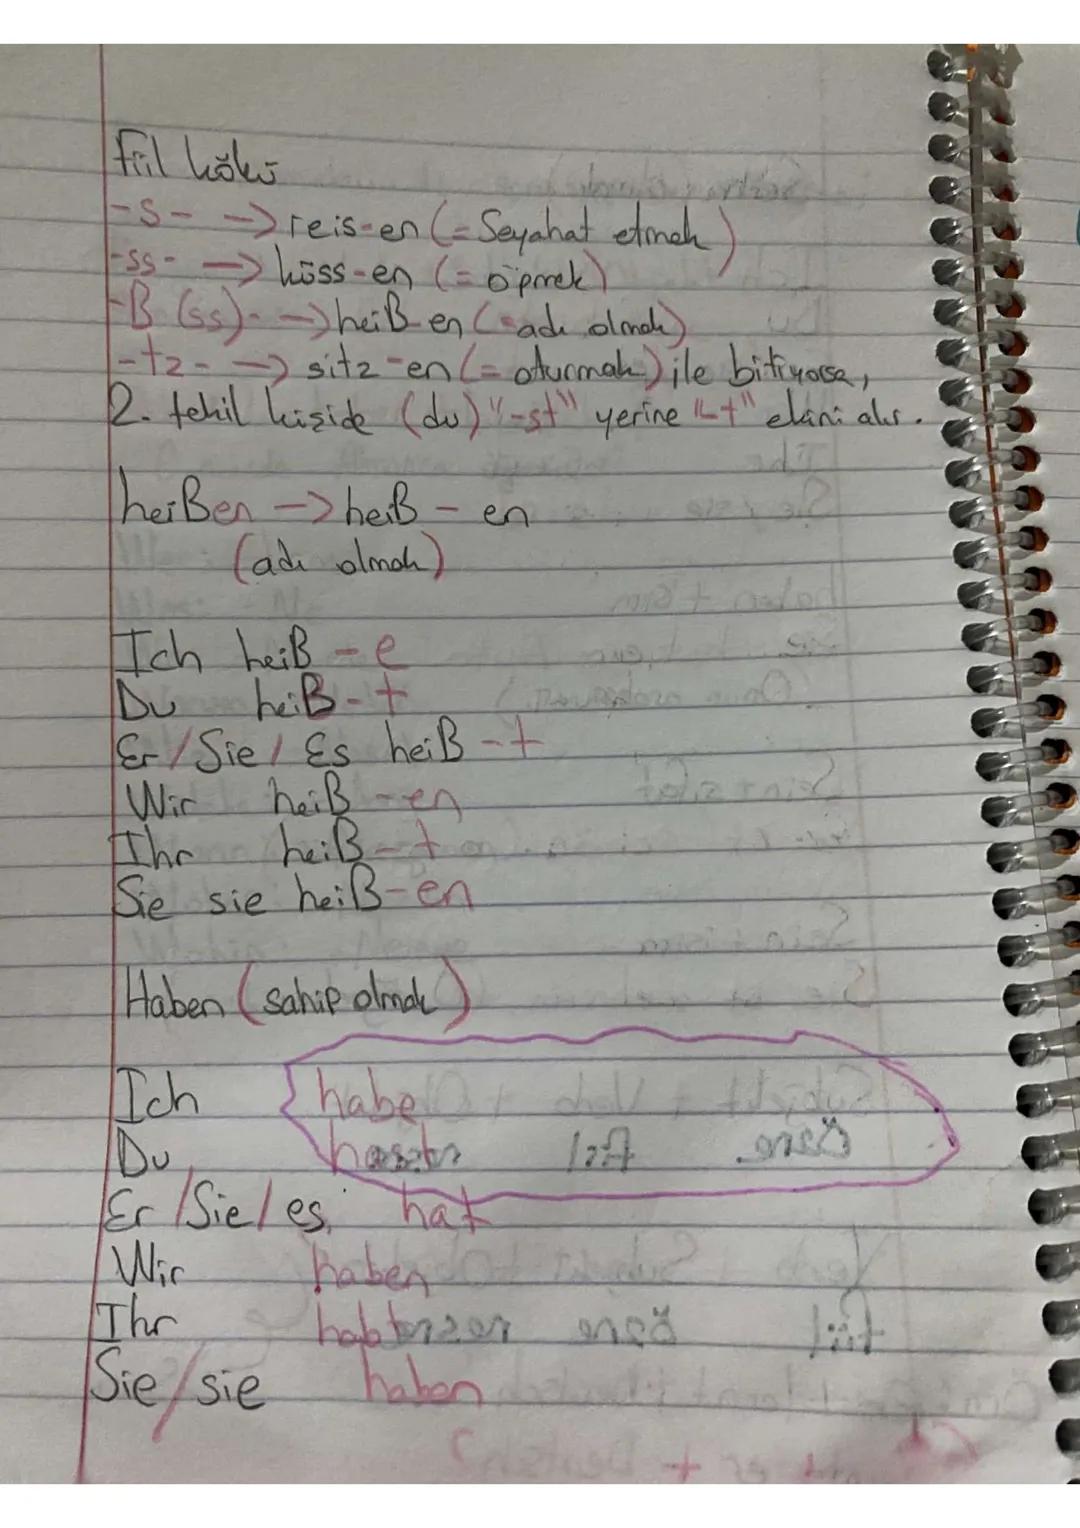 fiil kökü
-s- -> reis-en (= Seyahat etmek)
-ss- -> küss-en (= öpmek)
-ß (ss)- -> heiß en (= adı olmak)
-tz- -> sitz-en (= oturmak) ile bitiyorsa,
2. tekil kişide (du) "-st" yerine "-t" ekini alır.
heißen -> heiß - en
(adı olmak)
Ich heiß - e
Du heiß - t
Er / Sie / Es heiß - t
Wir heiß - en
Ihr heiß - t
Sie sie heiß - en
Haben (sahip olmak)
Ich habe
Du hast
Er / Sie / es hat
Wir haben
Ihr habt
Sie / sie haben